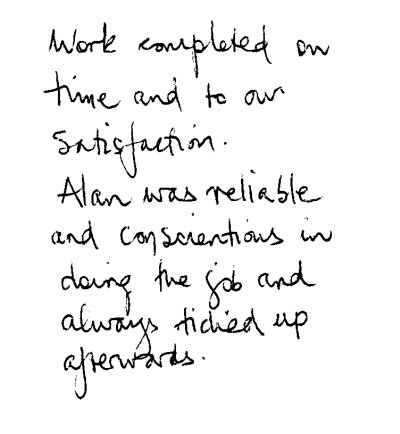 Work completed on
time and to our
satisfaction.
Alan was reliable
and conscientious in
doing the job and
always tidied up
afterwards.